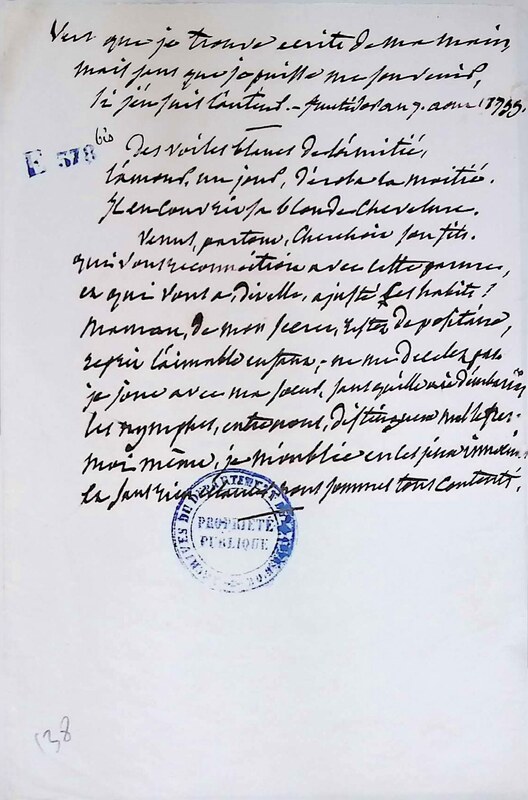 Vers que je trouve ecrits de ma main,
mais sans que je puisse me souvenir,
si j'en suis l'auteur. - aout 1793.
bis
E 378
Des voiles blancs de l'amitié,
L'amour, un jour, déroba la moitié.
Il en couvrit sa blonde chevelure.
Venus, partout, cherchoit son fils.
qui vous reconnoitroit avec cette parure,
et qui vous a, dit elle, ajusté ces habits?
maman, de mon secret, restez depositaire,
reprit l'aimable enfant; ne me decelez pas
je joue avec ma soeur, sans qu'elle ait d'embarras
les nymphes, entre nous, distinguent mal le
moi même, je m'oublie en ces jeux innocens
et sans rien nous sommes tous contents.
ARCHIVES DU DÉPARTEMENT DE
PROPRIÉTÉ
PUBLIQUE
138